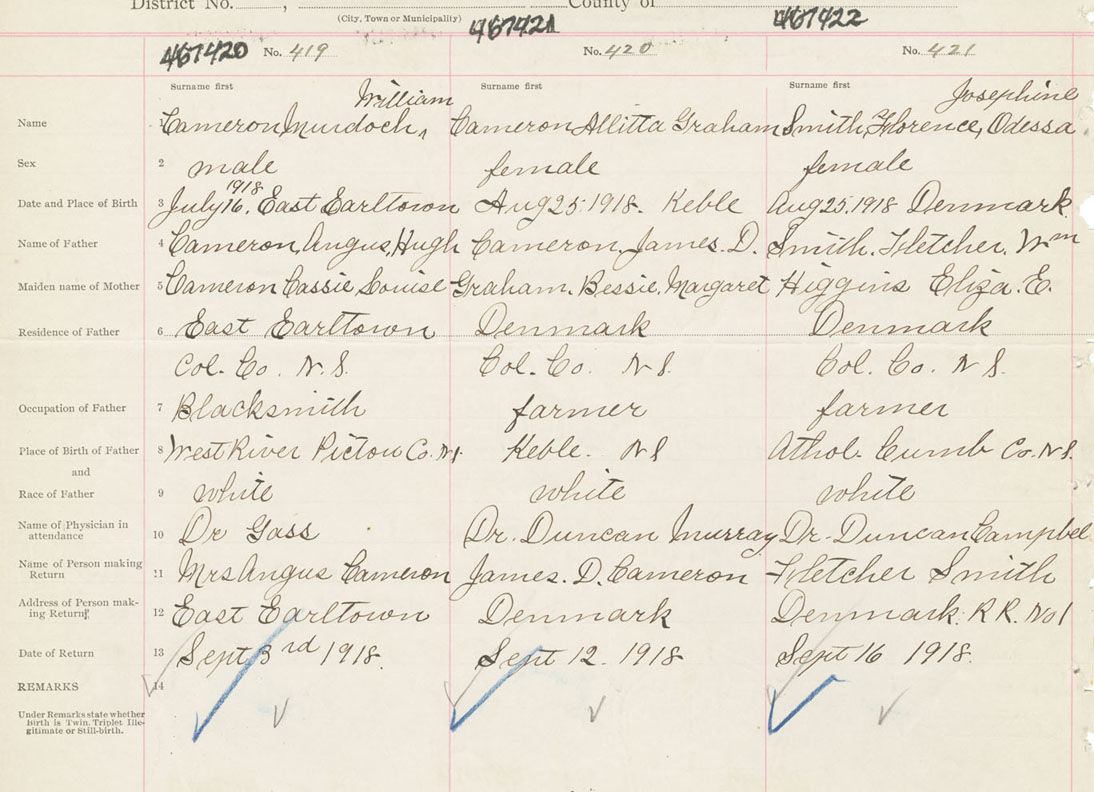 District No. , County of
(City, Town or Municipality)
467420 467421 467422
No. 419 No. 420 No. 421
Surname first Surname first Surname first
William Josephine
Name 1 Cameron Murdoch, Cameron Allitta Graham Smith, Florence, Odessa
Sex 2 male female female
1918
Date and Place of Birth 3 July 16. East Earltown Aug 25 1918. Keble Aug 25. 1918 Denmark.
Name of Father 4 Cameron, Angus, Hugh Cameron, James. D. Smith. Fletcher. Wm
Maiden name of Mother 5 Cameron Cassie Louise Graham. Bessie. Margaret Higgins Eliza. E.
Residence of Father 6 East Earltown Denmark Denmark
Col. Co. N.S. Col. Co. N S. Col. Co. N S.
Occupation of Father 7 Blacksmith farmer farmer
Place of Birth of Father 8 West River Pictou Co. N.S. Keble. N S Athol. Cumb Co. N.S.
and
Race of Father 9 white white white
Name of Physician in
attendance 10 Dr Gass Dr. Duncan Murray Dr. Duncan Campbel
Name of Person making
Return 11 Mrs Angus Cameron James. D. Cameron Fletcher Smith
Address of Person mak-
ing Return 12 East Earltown Denmark Denmark. R R. No 1
Date of Return 13 Sept 3rd 1918. Sept 12. 1918 Sept 16 1918.
REMARKS 14
Under Remarks state whether
Birth is Twin. Triplet Ille-
gitimate or Still-birth.